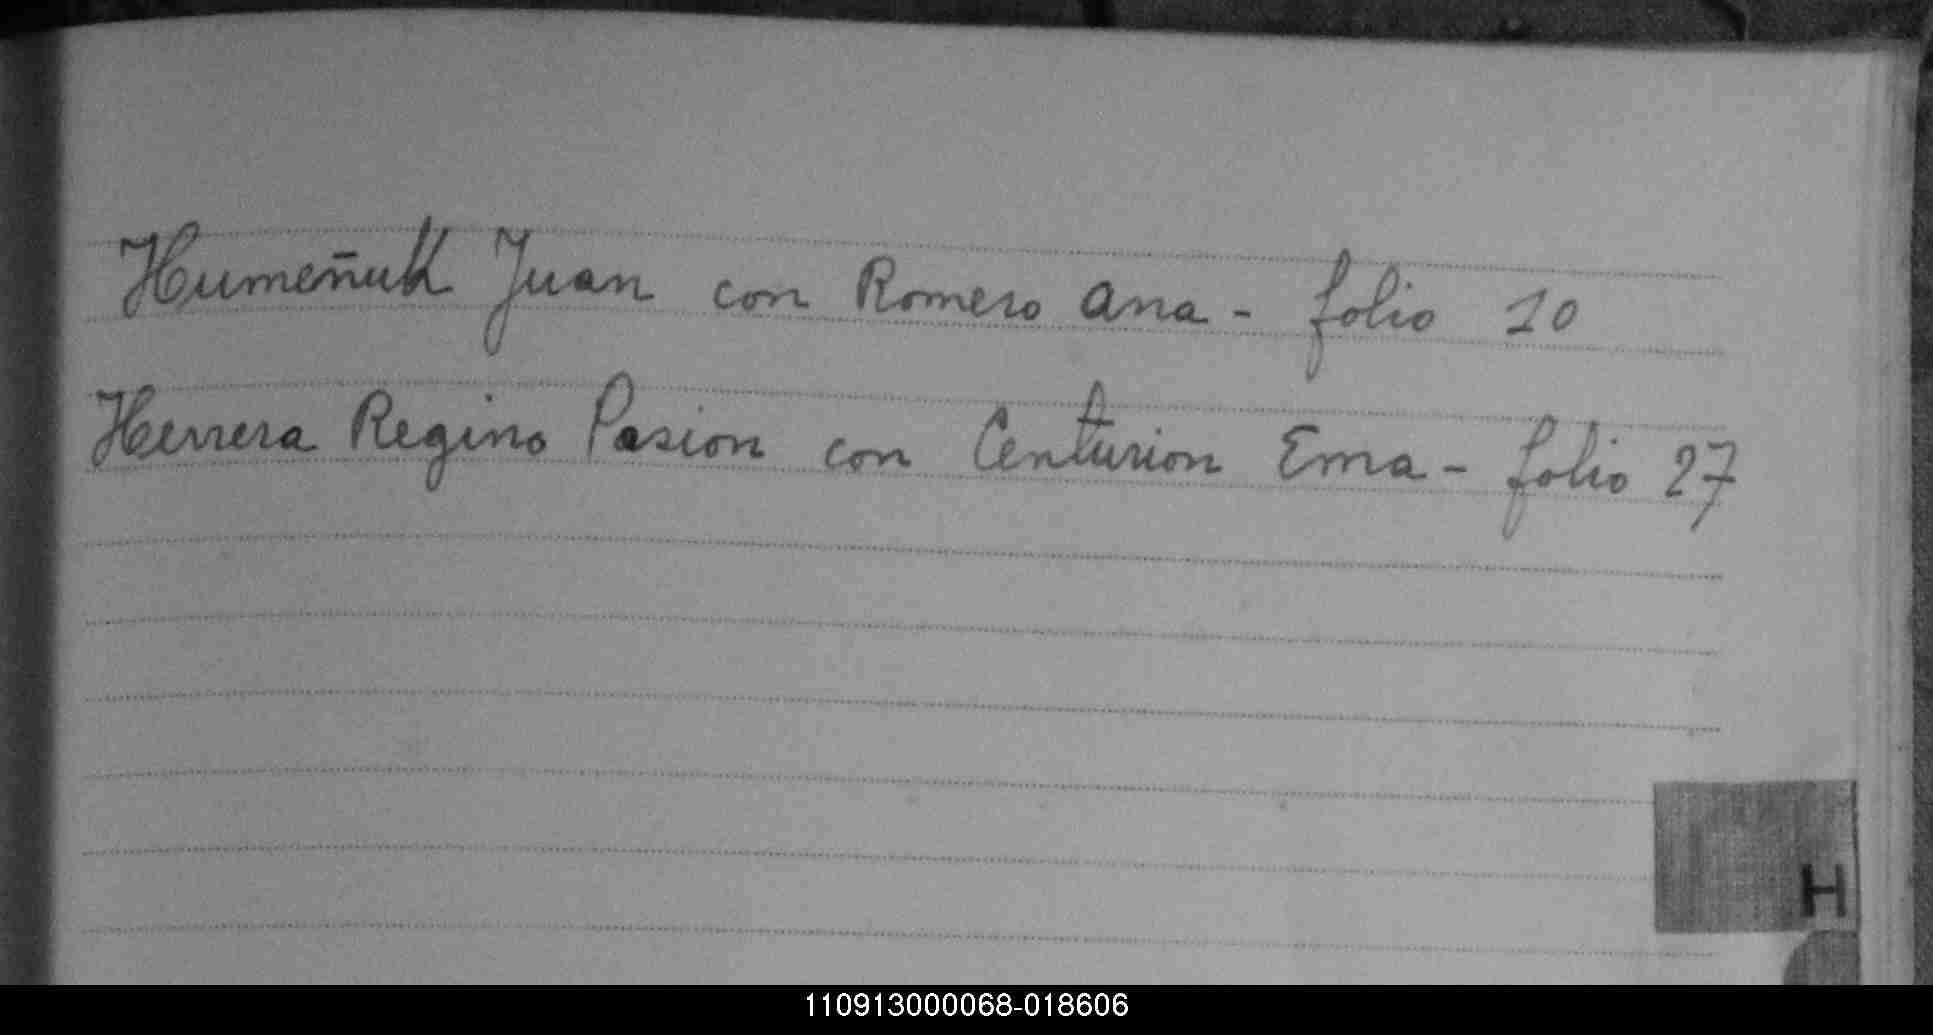 Humeñuk Juan con Romero Ana - folio 10
Herrera Regino Pasion con Centurion Ema - folio 27
H
110913000068-018606